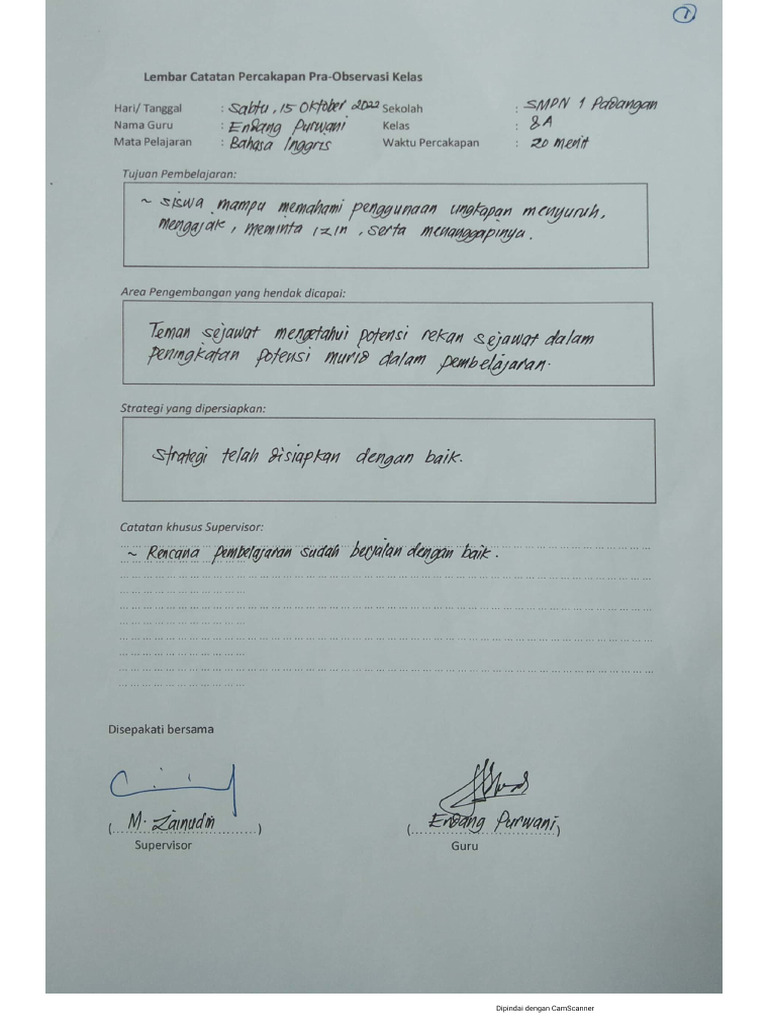 1.
Lembar Catatan Percakapan Pra-Observasi Kelas
Hari/ Tanggal : Sabtu, 15 Oktober 2022 Sekolah : SMPN 1 Padangan
Nama Guru : Endang Purwani Kelas : 8A
Mata Pelajaran : Bahasa Inggris Waktu Percakapan : 20 menit
Tujuan Pembelajaran:
~ Siswa mampu memahami penggunaan ungkapan menyuruh,
mengajak, meminta izin, serta menanggapinya.
Area Pengembangan yang hendak dicapai:
Teman sejawat mengetahui potensi rekan sejawat dalam
peningkatan potensi murid dalam pembelajaran.
Strategi yang dipersiapkan:
Strategi telah disiapkan dengan baik.
Catatan khusus Supervisor:
~ Rencana pembelajaran sudah berjalan dengan baik.
Disepakati bersama
(M. Zainudin) (Endang Purwani)
Supervisor Guru
Dipindai dengan CamScanner